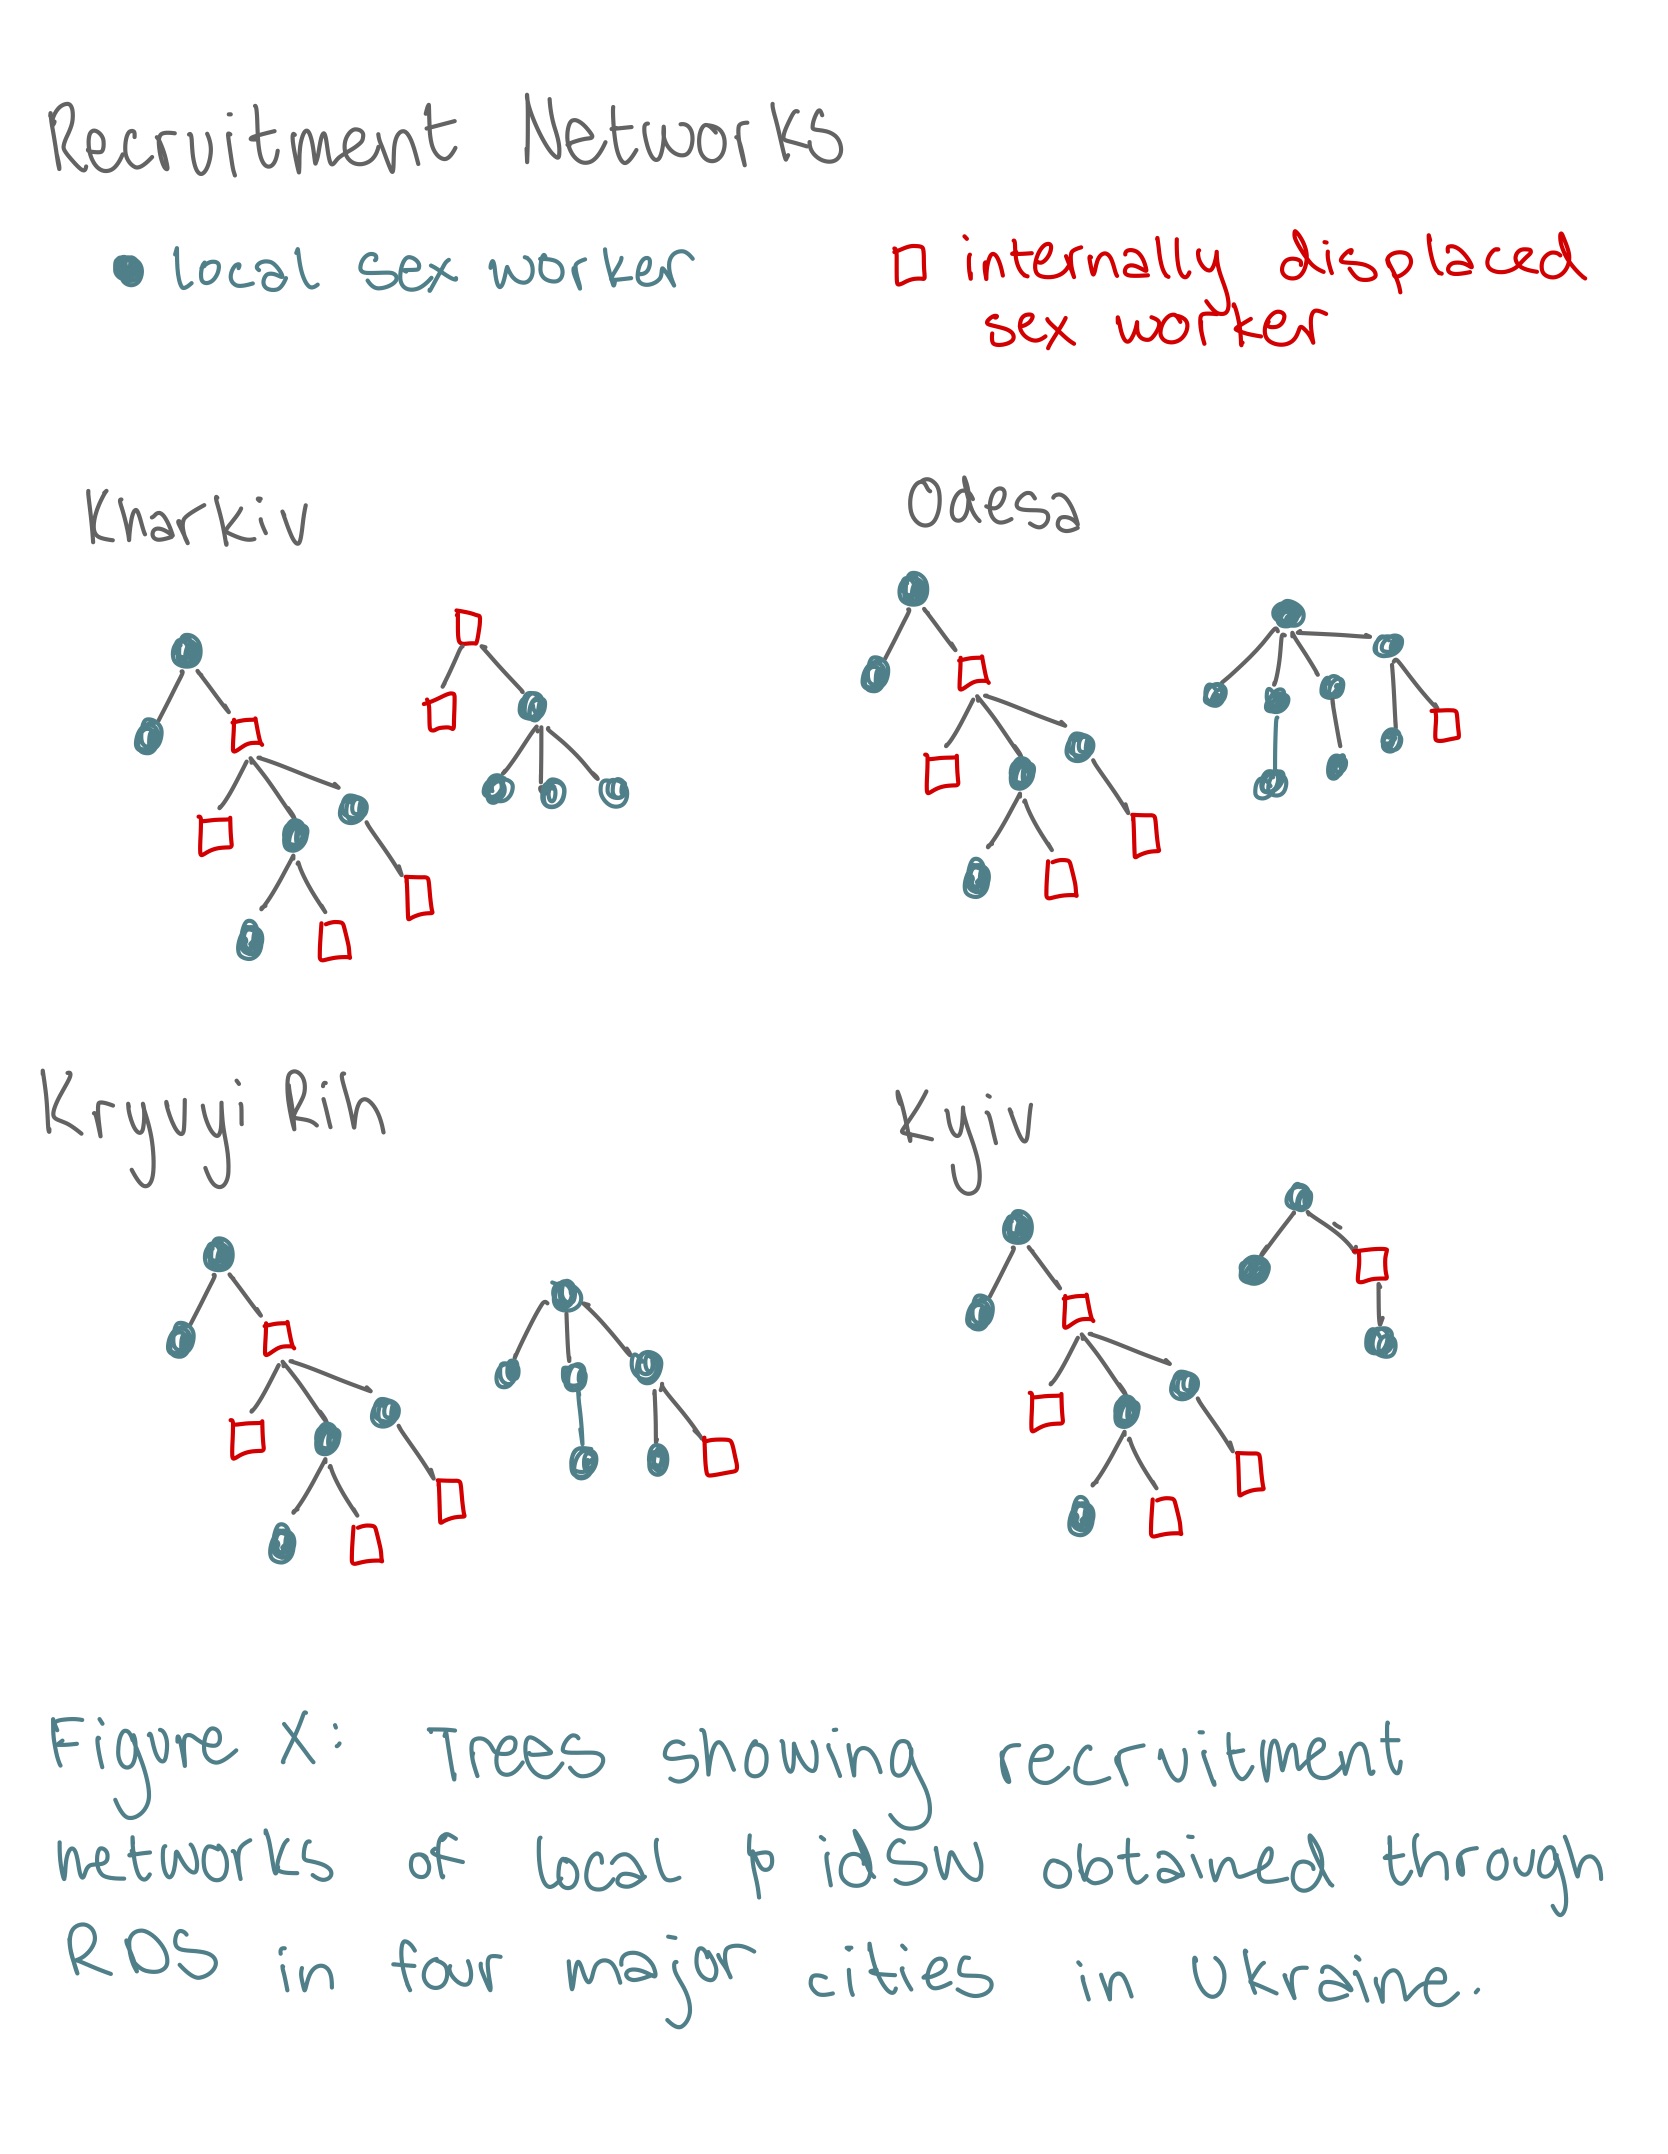 Recruitment Networks
local sex worker
internally displaced
sex worker
Kharkiv
Odesa
Kryvyi Rih
Kyiv
Figure X: Trees showing recruitment
networks of local & idSW obtained through
RDS in four major cities in Ukraine.